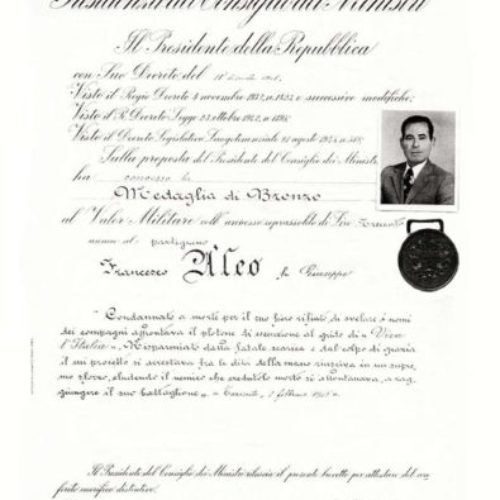 Presidenza del Consiglio dei Ministri
Il Presidente della Repubblica
con Suo Decreto del
Visto il Regio Decreto 4 novembre 1932, n. 1423 e successive modifiche;
Visto il R. Decreto Legge 23 ottobre 1942, n. 1195
Visto il Decreto Legislativo Luogotenenziale 21 agosto 1945, n. 518
Sulla proposta del Presidente del Consiglio dei Ministri
ha concesso la
Medaglia di Bronzo
al Valor Militare coll' annesso soprassoldo di Lire
annue al partigiano
Francesco Aleo fu Giuseppe
"Condannato a morte per il suo fiero rifiuto di svelare i nomi
dei compagni affrontava il plotone di esecuzione al grido di "Viva
l'Italia". Risparmiato dalla fatale scarica e dal colpo di grazia
il cui proietto si arrestava fra le dita della mano riusciva in un supre-
mo sforzo, eludendo il nemico che credutolo morto si allontanava, a rag-
giungere il suo battaglione". - febbraio 1945 -
Il Presidente del Consiglio dei Ministri rilascia il presente brevetto per attestare del con-
ferito onorifico distintivo.